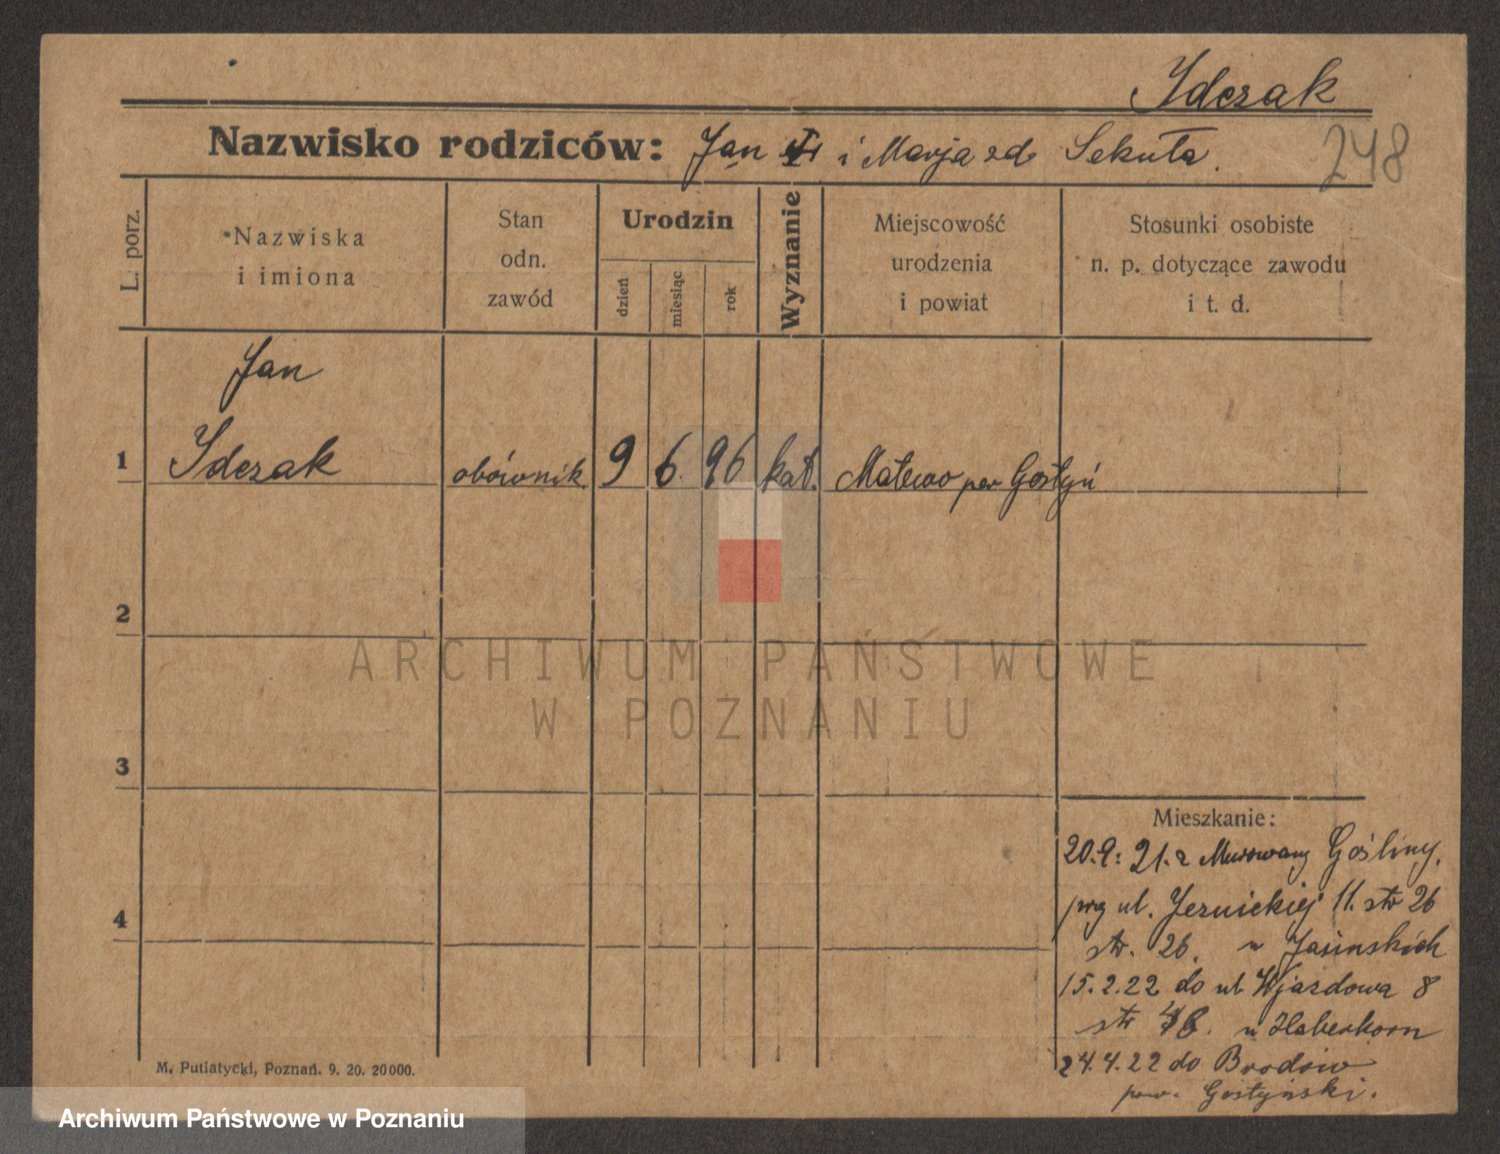 Idczak
Nazwisko rodziców: Jan i Marja zd Sekuła.
248
L. porz.
Nazwiska
i imiona
Stan
odn.
zawód
Urodzin
dzień
miesiąc
rok
Wyznanie
Miejscowość
urodzenia
i powiat
Stosunki osobiste
n. p. dotyczące zawodu
i t. d.
Jan
1 Idczak obównik 9 6. 96 kat. Malewo pow Gostyń
2
3
4
ARCHIWUM PAŃSTWOWE
W POZNANIU
Mieszkanie:
20.9. 21. z Murowany Gośliny.
przy ul. 11. str 26
str. 26. u Jasińskich
15.2.22 do ul Wjazdowa 8
str u Haberkorn
24.4.22 do Brodów
pow. Gostyński.
M. Putiatycki, Poznań. 9. 20. 20000.
Archiwum Państwowe w Poznaniu